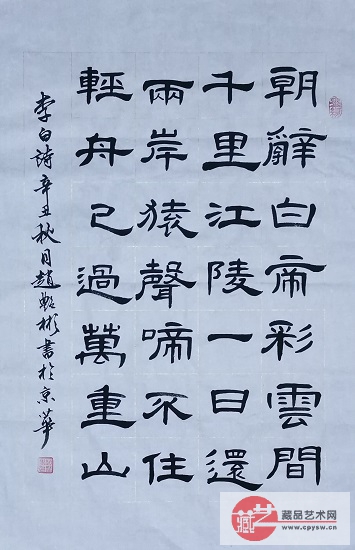 朝辭白帝彩雲間
千里江陵一日還
兩岸猿聲啼不住
輕舟已過萬重山
李白詩辛丑秋月趙彬書於京華
藏艺
藏品艺术网
www.cpysw.cn